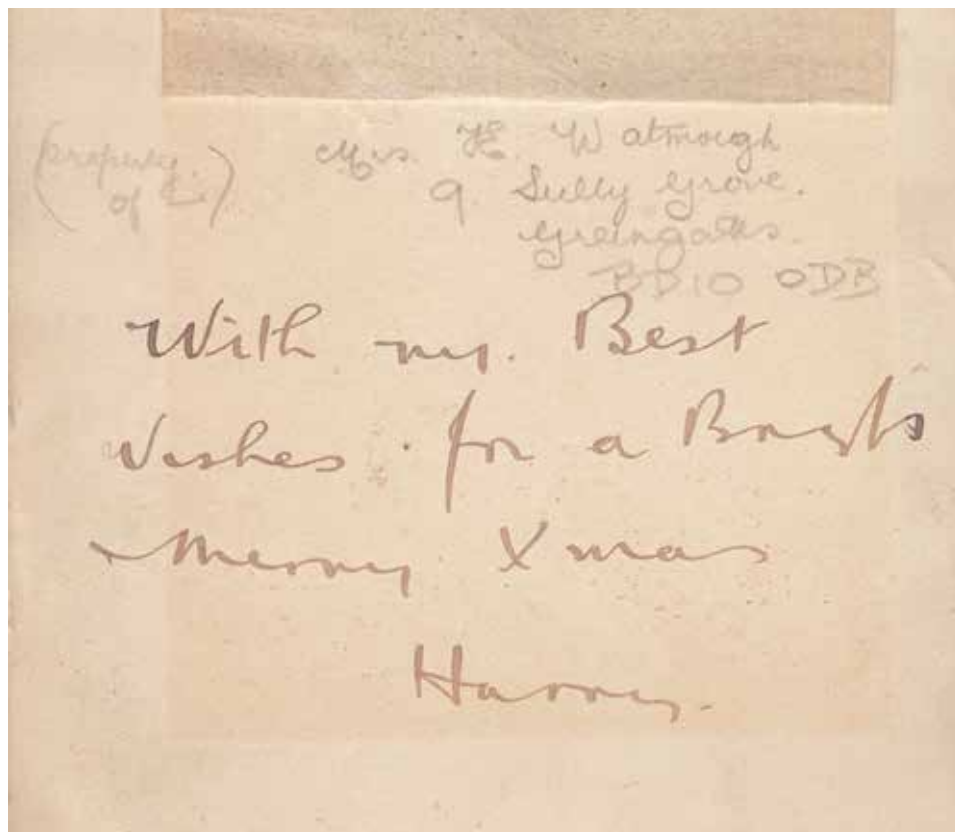 (property of
Mrs. H. Watmough
9. Sully Grove.
Greengates.
BD10 0DB
With my. Best
Wishes for a Bright
& Merry Xmas
Harry.